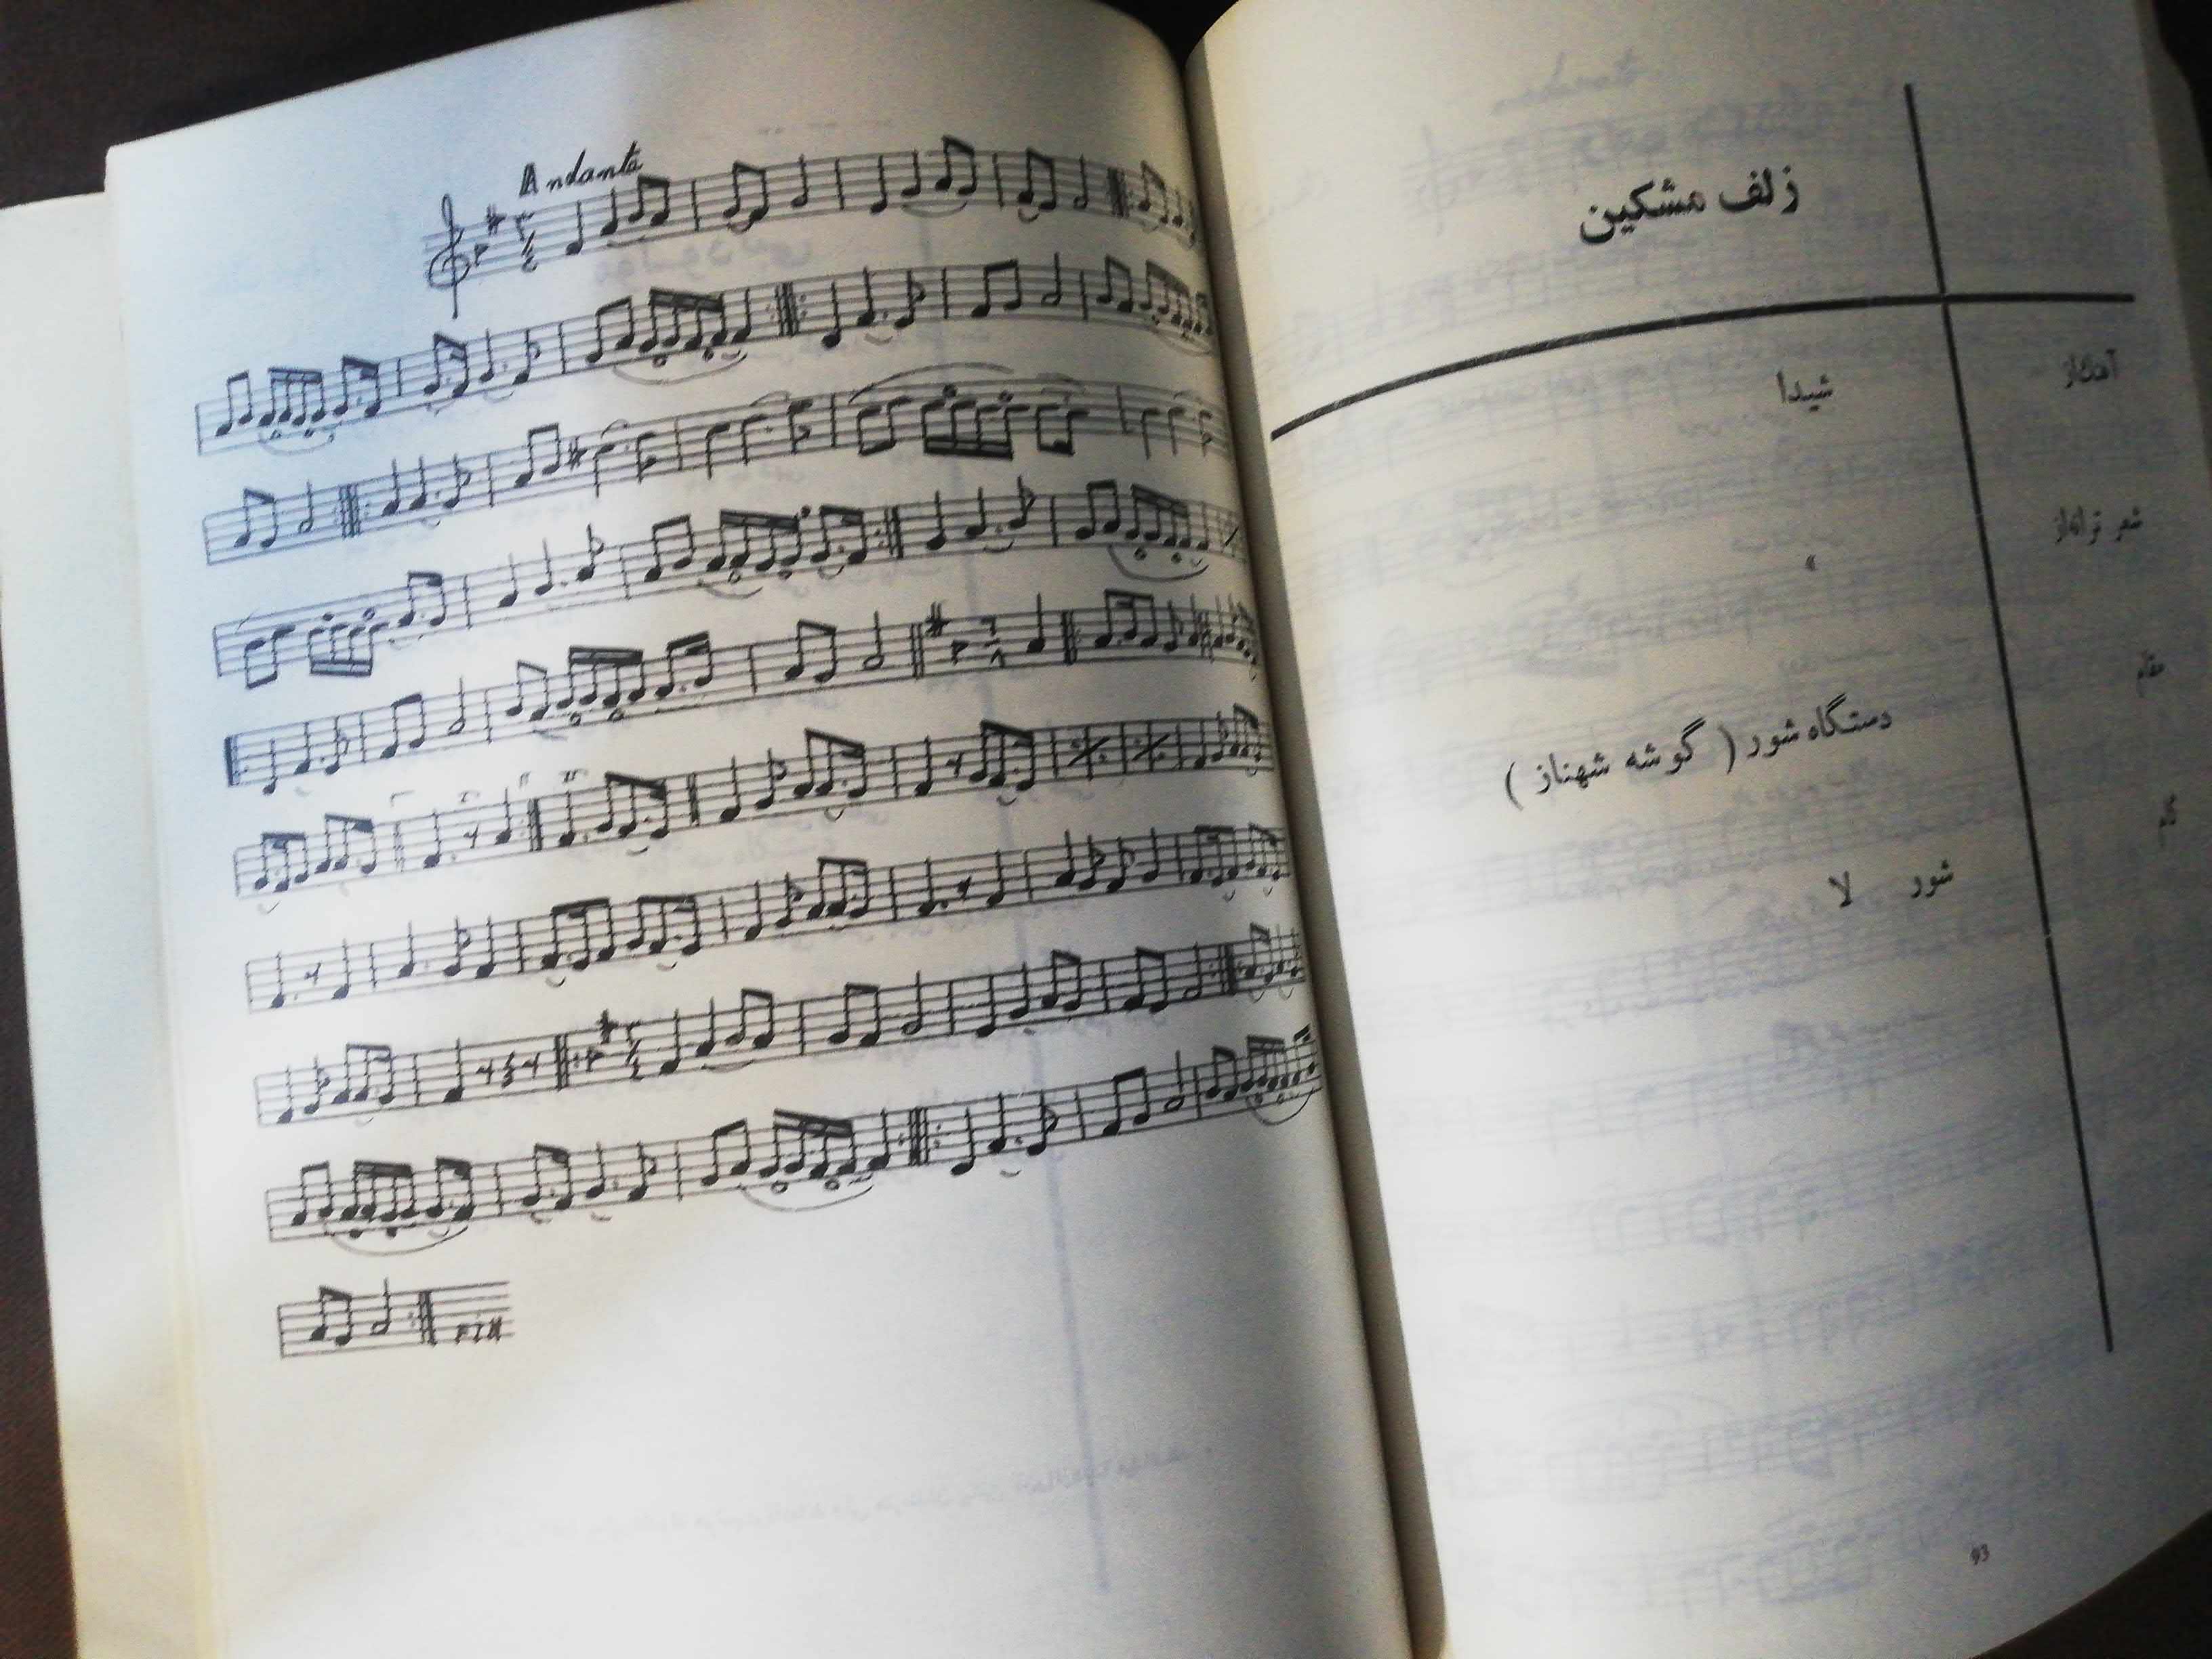 Andante
FIN
زلف مشکین
آهنگ از
شیدا
شعر ترانه از
»
مقام
دستگاه شور ( گوشه شهناز )
گام
شور لا
93